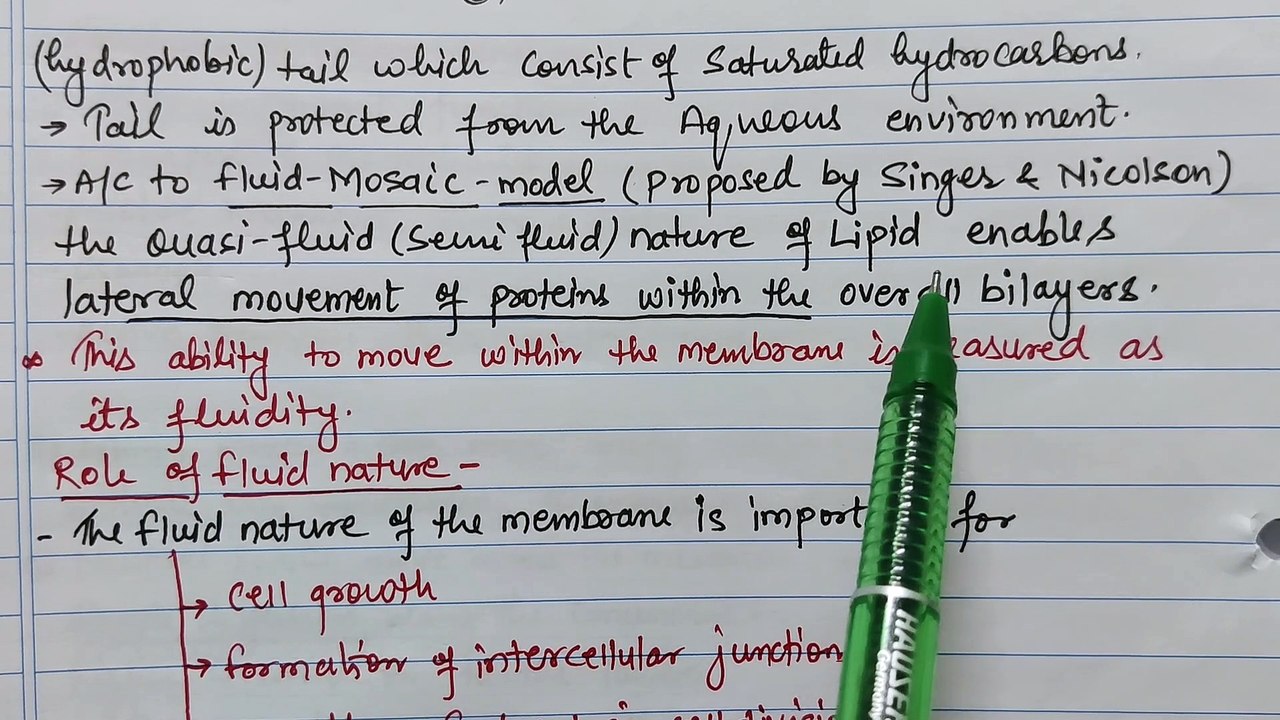 (hydrophobic) tail which consist of saturated hydrocarbons.
→ Tail is protected from the Aqueous environment.
→ A/C to fluid-Mosaic-model (proposed by Singer & Nicolson)
the quasi-fluid (semi fluid) nature of Lipid enables
lateral movement of proteins within the overall bilayers.
This ability to move within the membrane is measured as
its fluidity.
Role of fluid nature -
- The fluid nature of the membrane is important for
→ cell growth
→ formation of intercellular junction
HAUSER